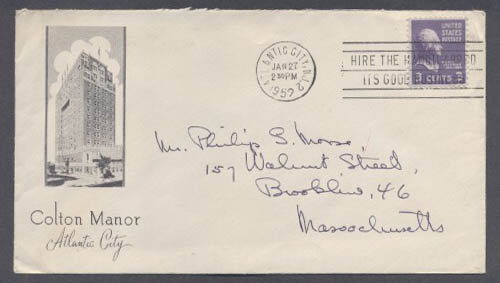 ATLANTIC CITY, N.J. 2
JAN 27
2 30 PM
1957
HIRE THE HANDICAPPED
IT'S GOOD
UNITED
STATES
POSTAGE
3 CENTS 3
Mr. Philip S. Morse,
157 Walnut Street,
Brookline, 46
Massachusetts
Colton Manor
Atlantic City